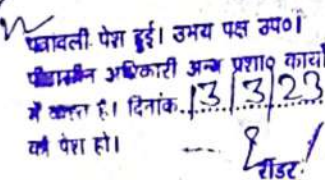 पत्रावली पेश हुई। उभय पक्ष उप०।
पीठासीन अधिकारी अन्य प्रशा० कार्यो
में व्यस्त है। दिनांक 13/3/23
को पेश हो।
रीडर